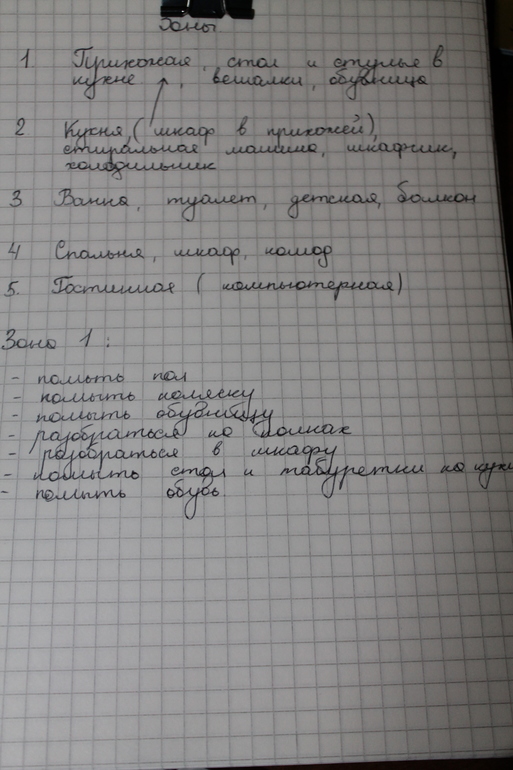 Зоны
1 Прихожая, стол и стулья в
кухне, вешалки, обувница
2 Кухня, (шкаф в прихожей),
стиральная машина, шкафчик,
холодильник
3 Ванна, туалет, детская, балкон
4 Спальня, шкаф, комод
5. Гостинная (компьютерная)
Зона 1:
- помыть пол
- помыть коляску
- помыть обувницу
- разобраться на полках
- разобраться в шкафу
- помыть стол и табуретки на кухн
- помыть обувь.